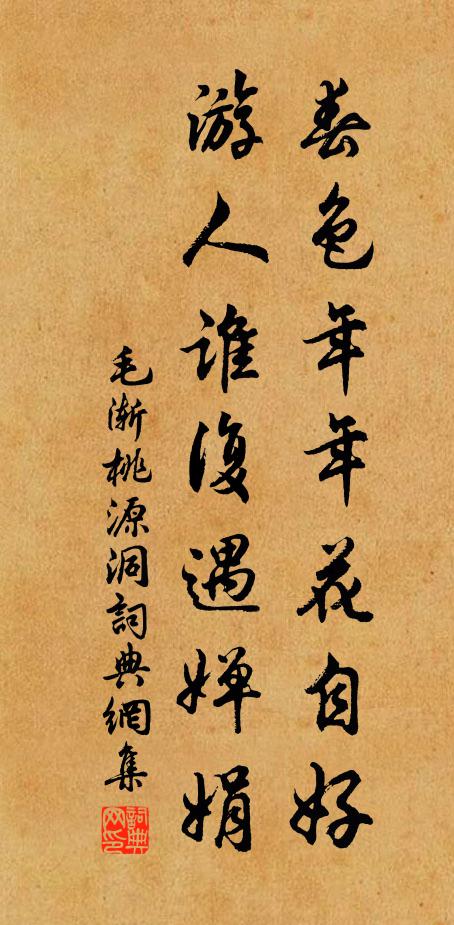 春色年年花自好
游人谁復遇婵娟
毛渐桃源洞詞典網集
詞典网印